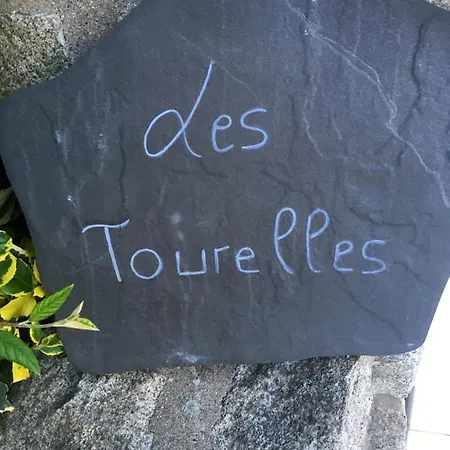 Les
Tourelles